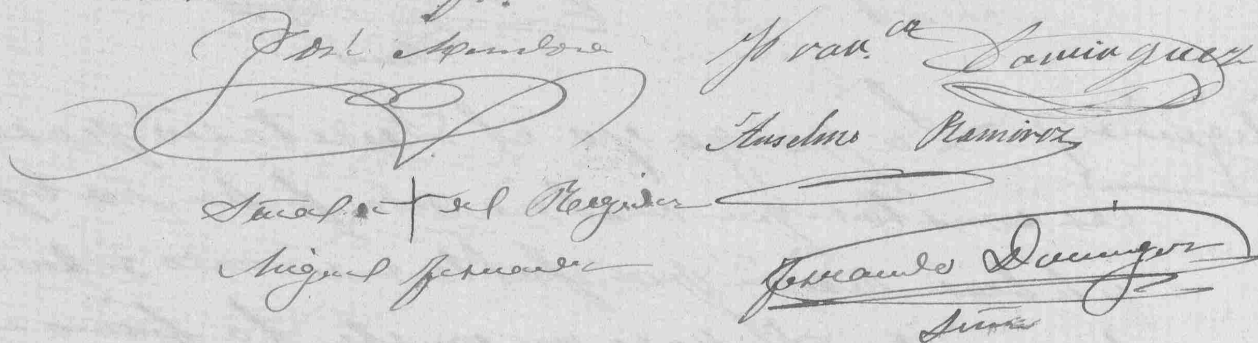 José Mendoza
Fran.co Dominguez
Anselmo Ramirez
Señal + del Regidor
Miguel Fernandez
Fernando Dominguez
Srio